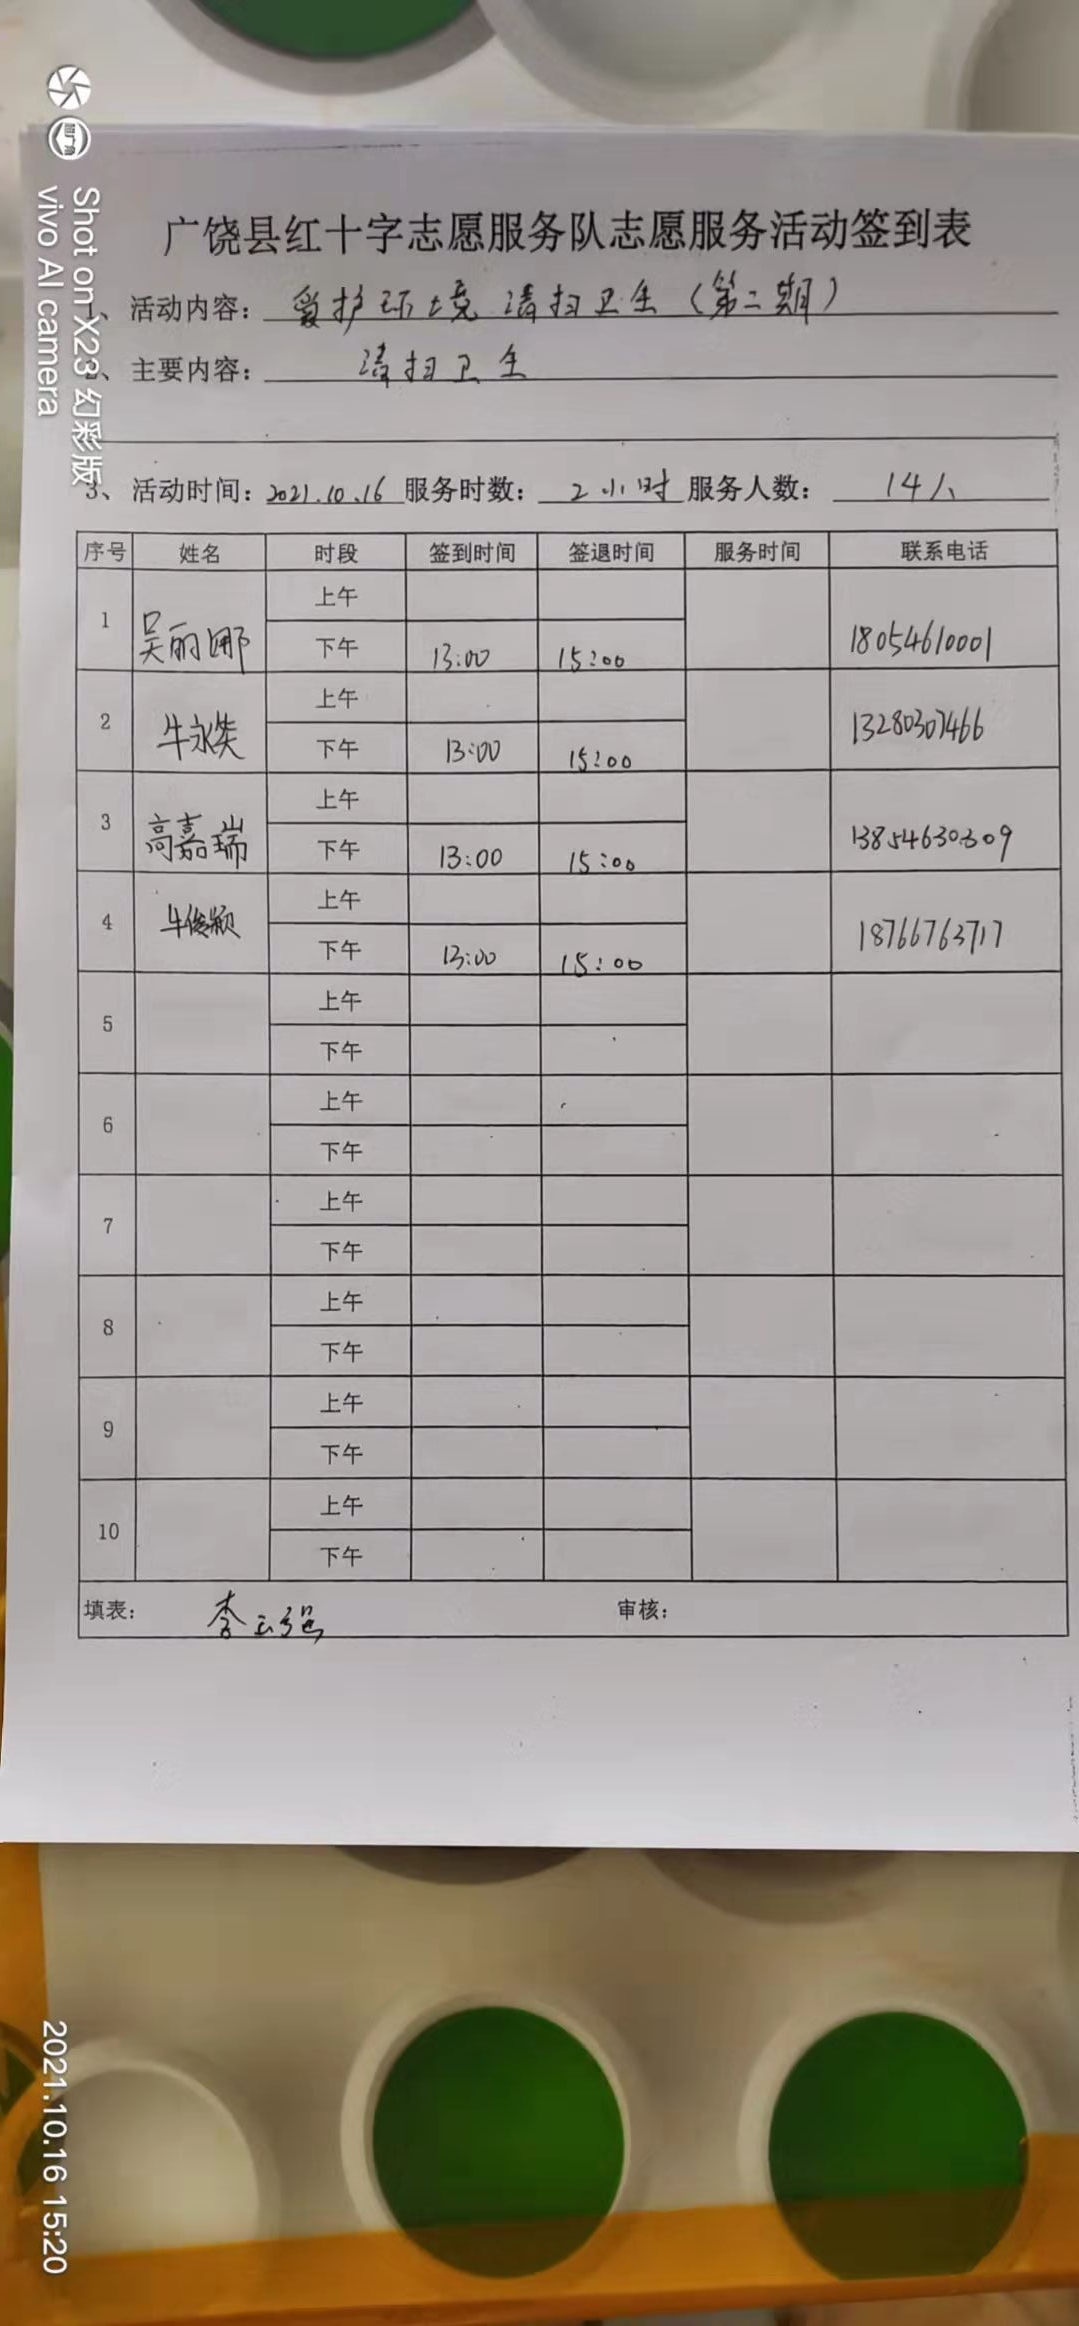 广饶县红十字志愿服务队志愿服务活动签到表
1、活动内容：爱护环境 清扫卫生（第二期）
2、主要内容：清扫卫生
3、活动时间：2021.10.16 服务时数：2小时 服务人数：14人
序号 姓名 时段 签到时间 签退时间 服务时间 联系电话
1 吴丽娜 上午
下午 13:00 15:00 18054610001
2 牛永 上午
下午 13:00 15:00 13280307466
3 高嘉瑞 上午
下午 13:00 15:00 13854630309
4 牛俊颖 上午
下午 13:00 15:00 18766763717
5 上午
下午
6 上午
下午
7 上午
下午
8 上午
下午
9 上午
下午
10 上午
下午
填表：李玉强 审核：
Shot on X23 幻彩版
vivo AI camera
2021.10.16 15:20